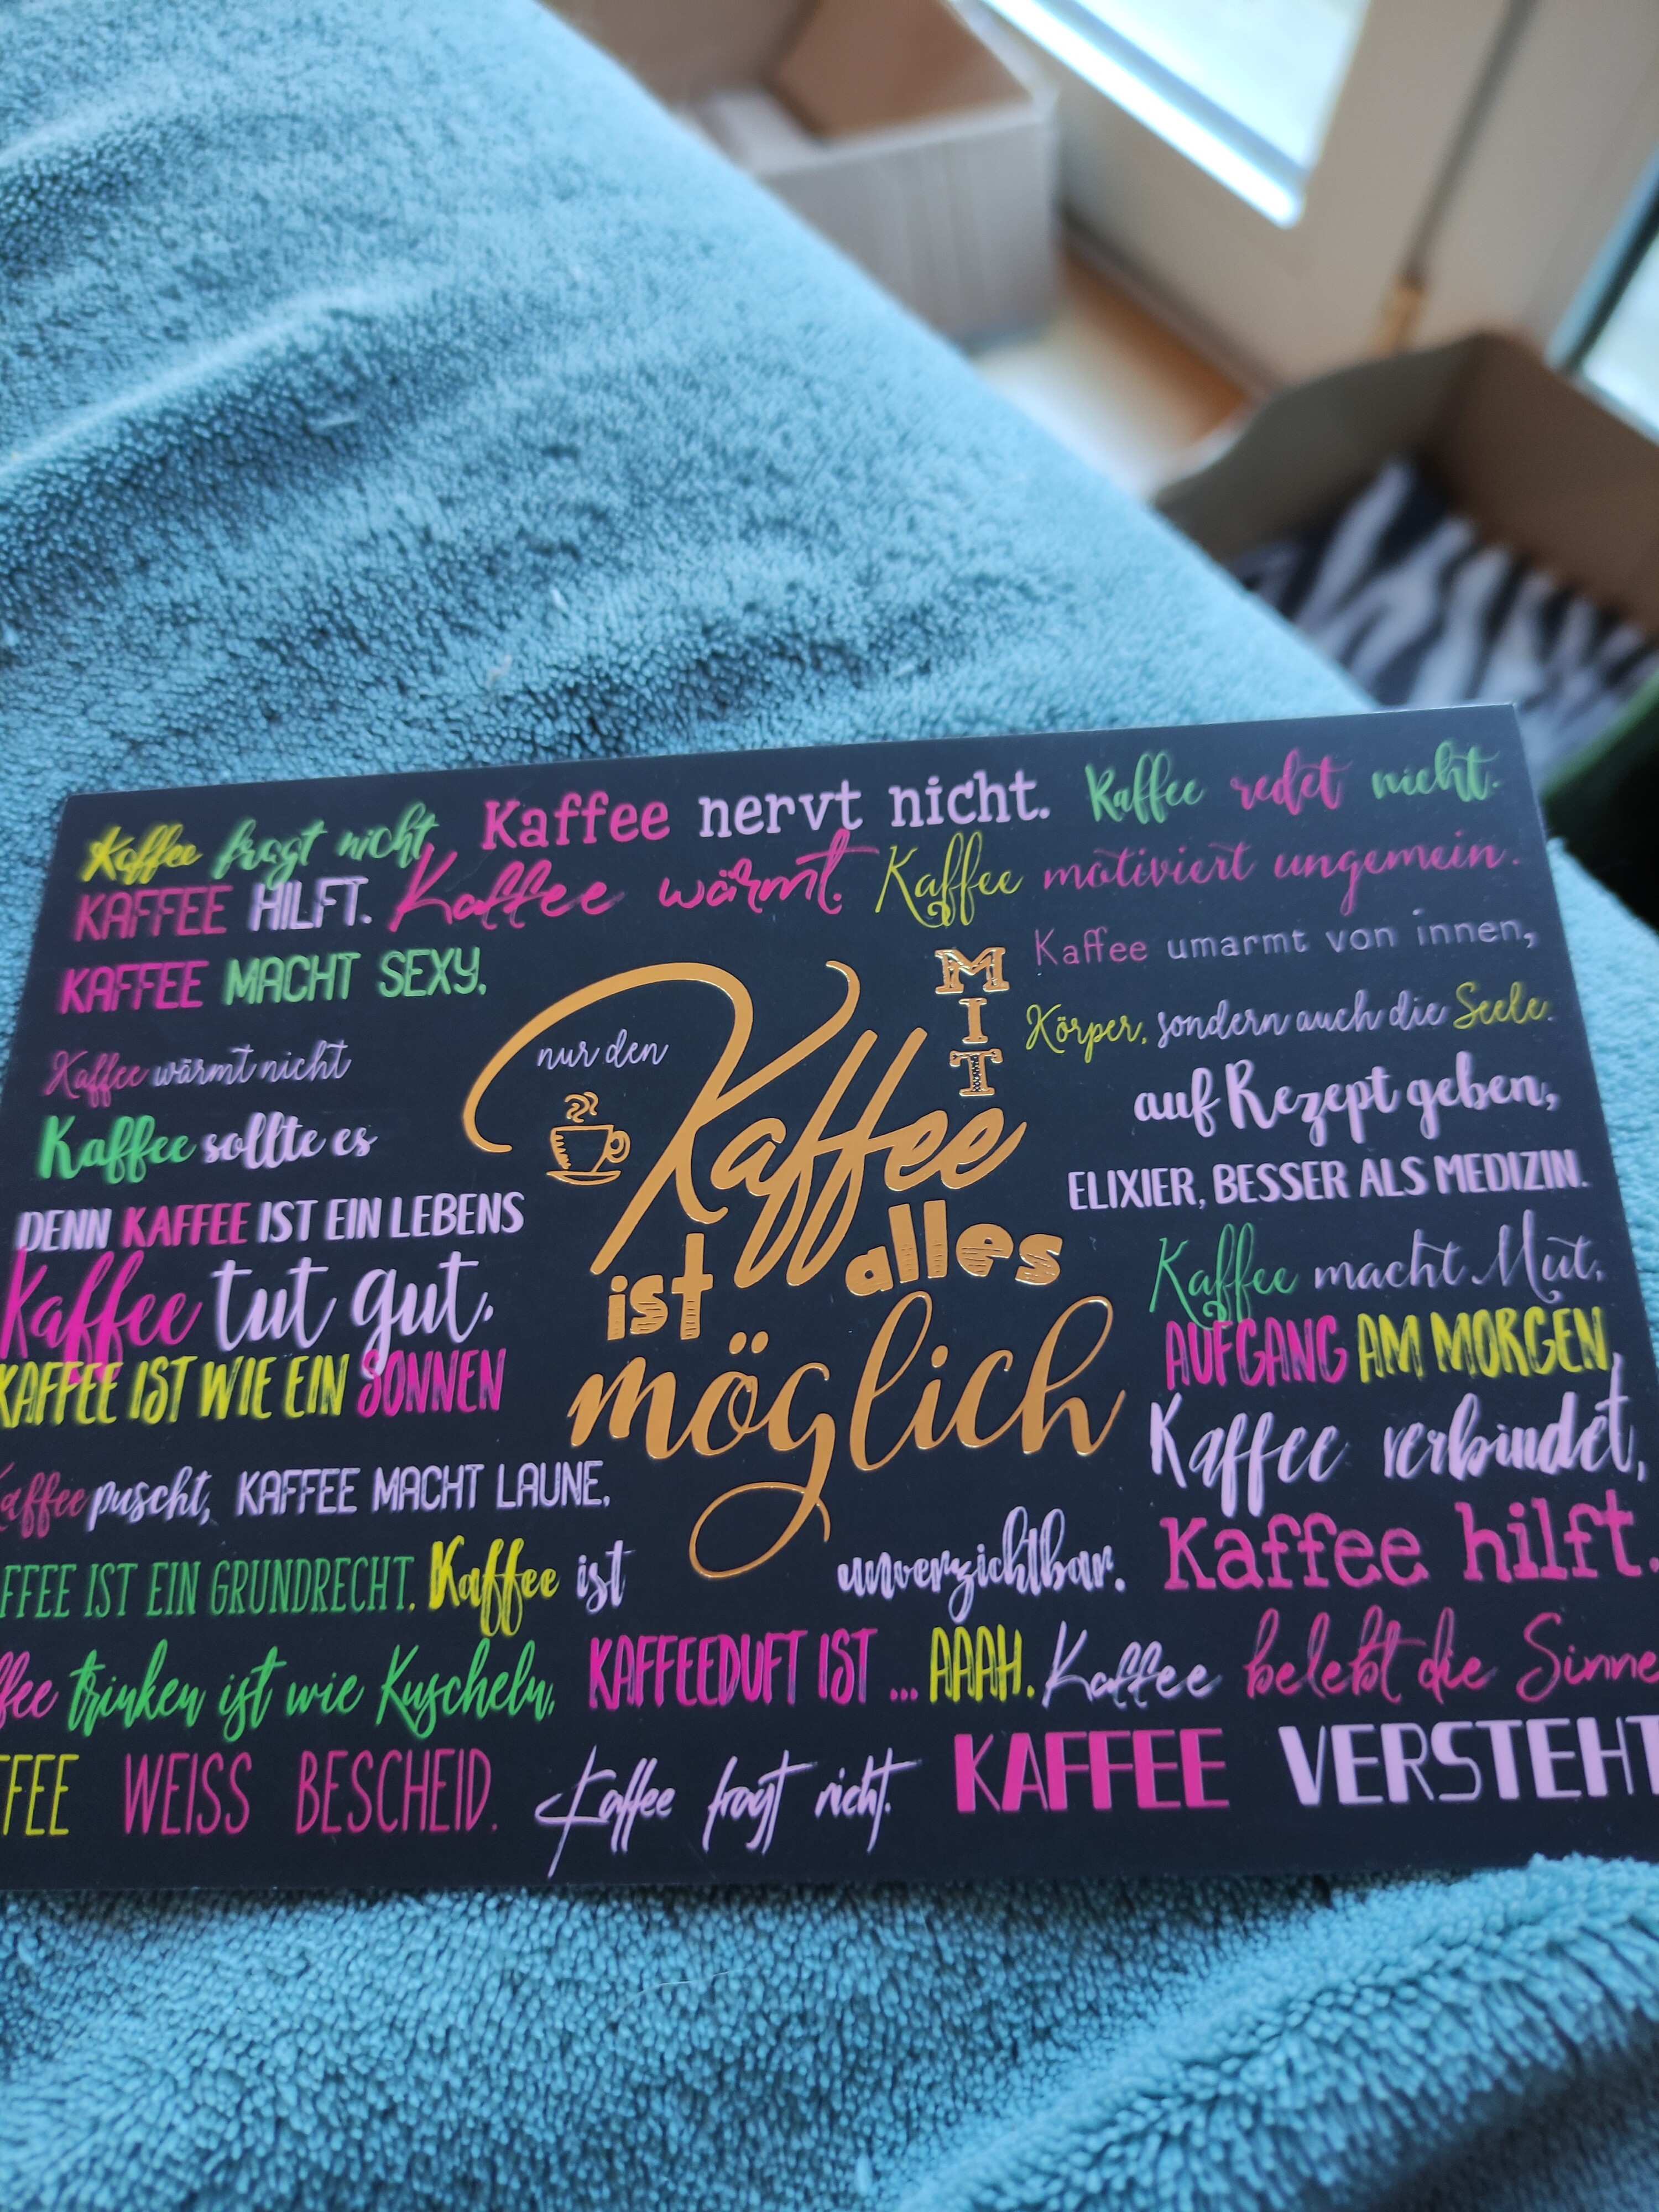 Kaffee fragt nicht, Kaffee nervt nicht. Kaffee redet nicht.
KAFFEE HILFT. Kaffee wärmt. Kaffee motiviert ungemein.
KAFFEE MACHT SEXY, Kaffee umarmt von innen,
Kaffee wärmt nicht nur den Körper, sondern auch die Seele.
Kaffee sollte es auf Rezept geben,
DENN KAFFEE IST EIN LEBENS ELIXIER, BESSER ALS MEDIZIN.
Kaffee tut gut. Kaffee macht Mut,
KAFFEE IST WIE EIN SONNEN AUFGANG AM MORGEN,
MIT
Kaffee
ist alles
möglich
Kaffee puscht, KAFFEE MACHT LAUNE, Kaffee verbindet,
FFEE IST EIN GRUNDRECHT. Kaffee ist unverzichtbar. Kaffee hilft.
ffee trinken ist wie Kuscheln, KAFFEEDUFT IST ... AAAH. Kaffee belebt die Sinne
FFEE WEISS BESCHEID. Kaffee fragt nicht. KAFFEE VERSTEHT